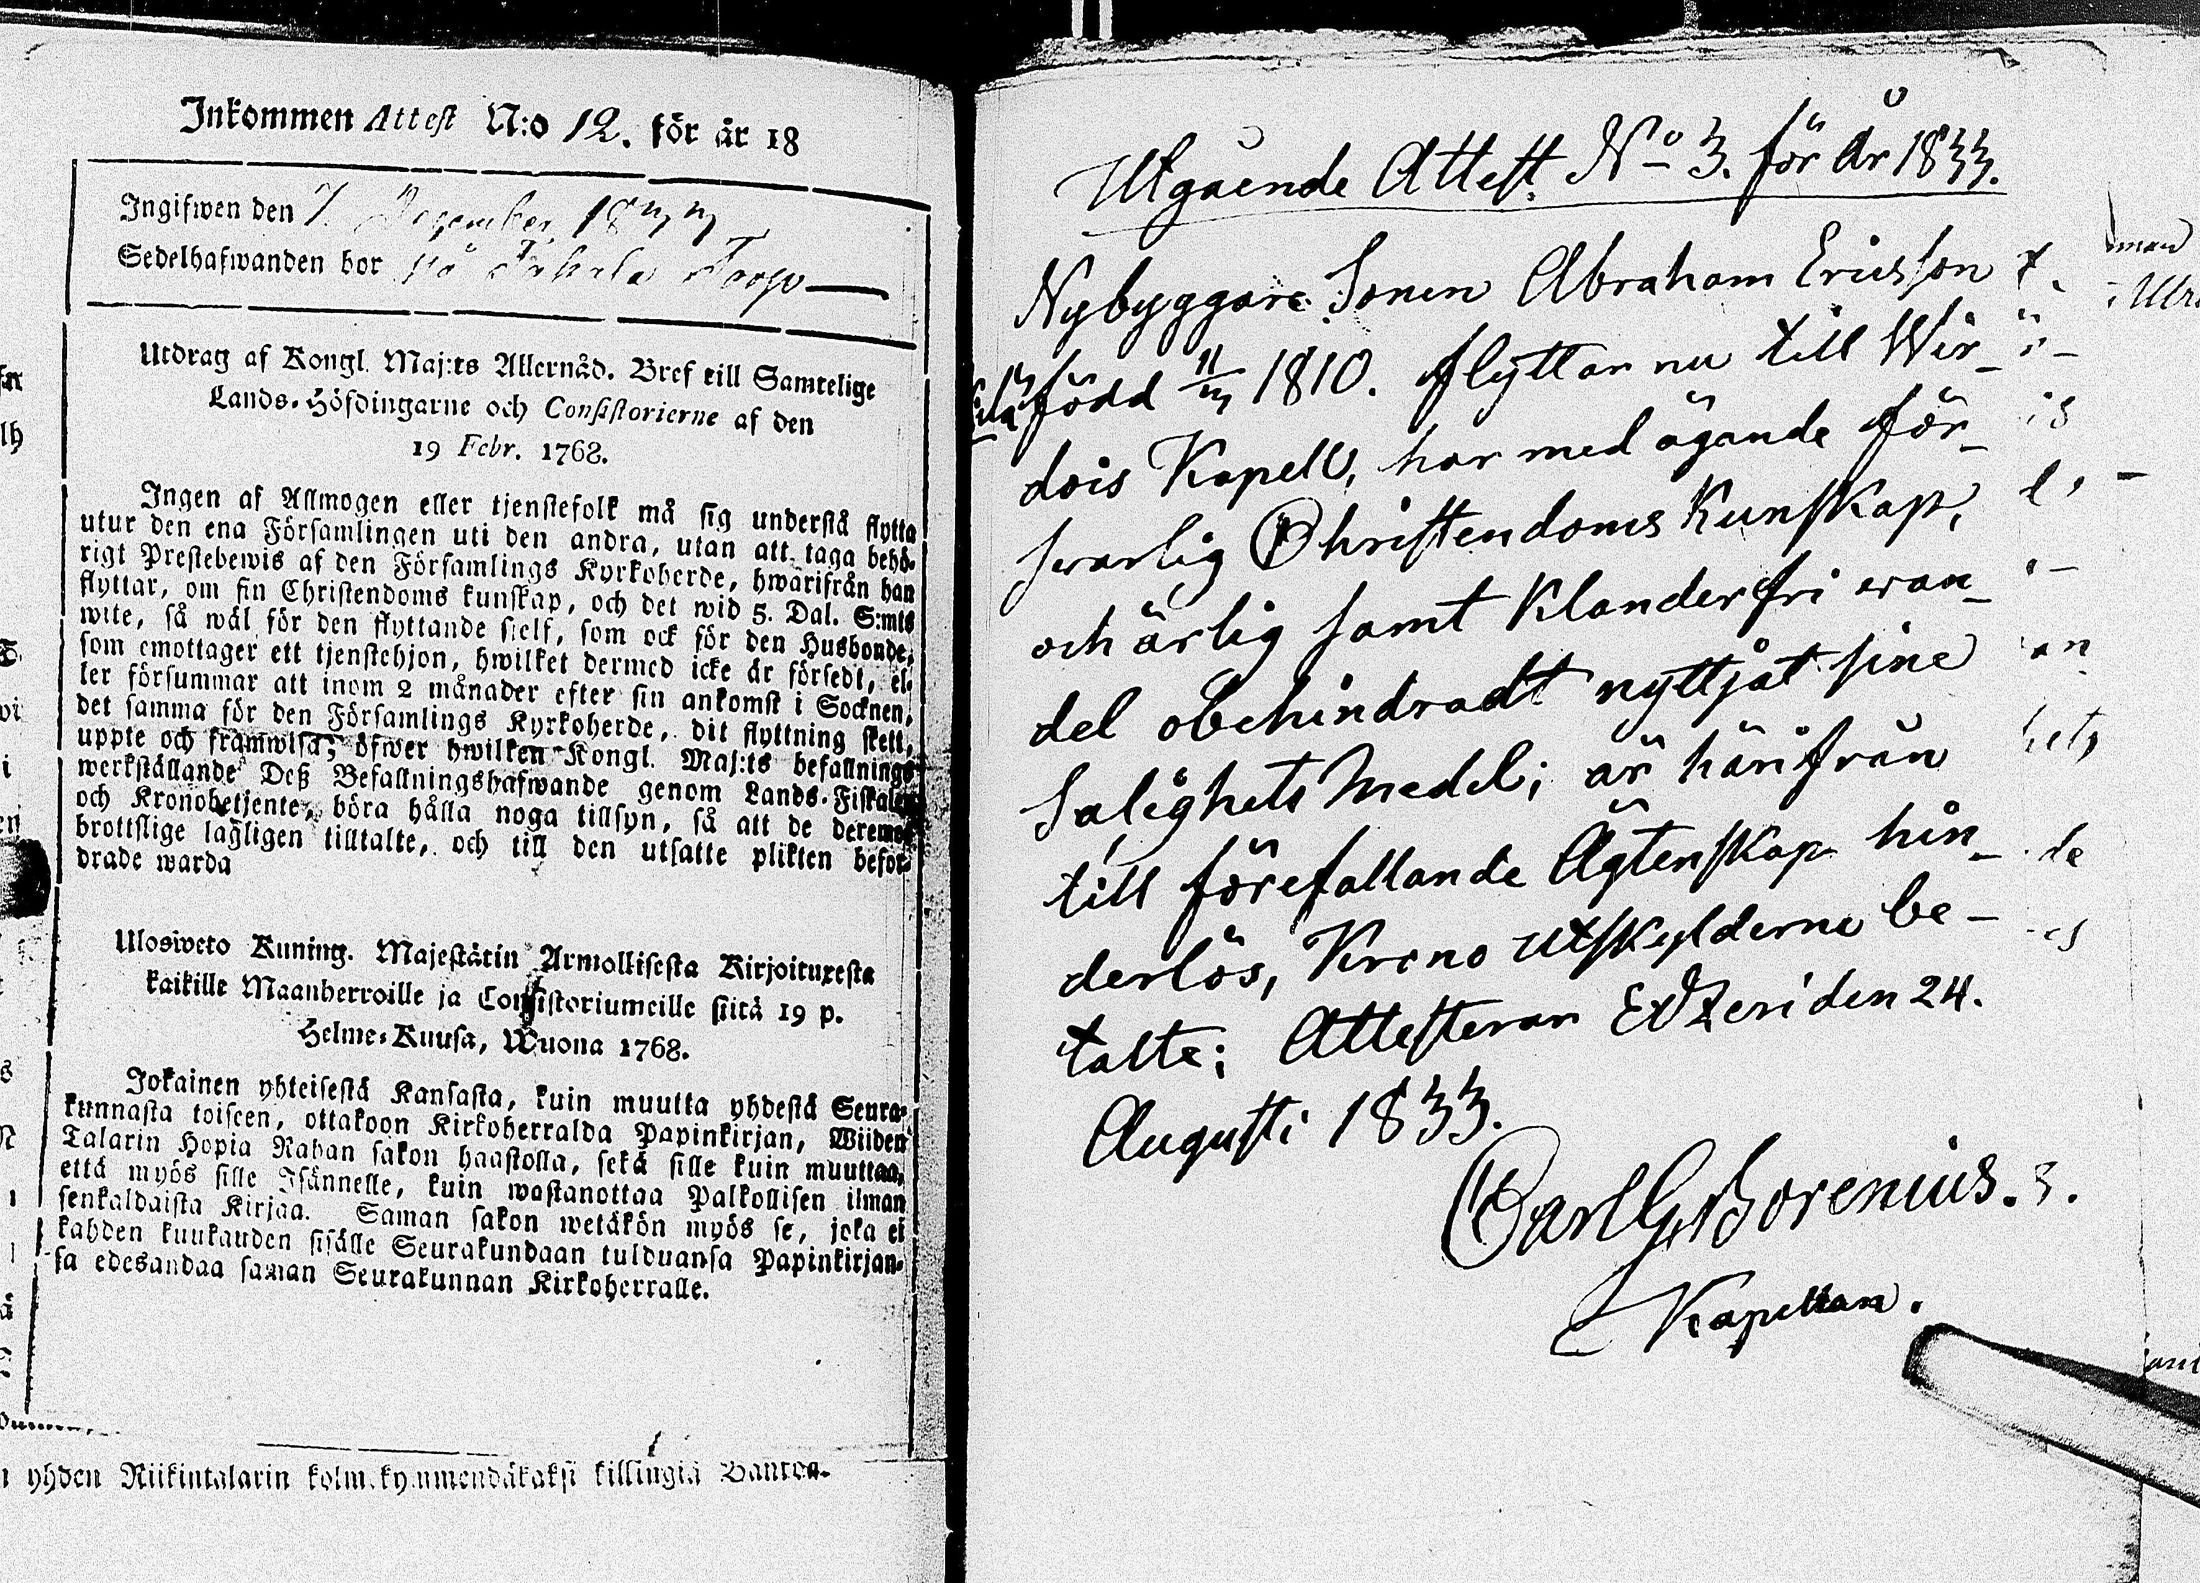 Inkommen Attest N:o 12. för år 18
Ingifwen den 7. December 1833
Sedelhafwanden bor på Torp
Utdrag af Kongl. Maj:ts Allernåd. Bref till Samtelige
Lands-Höfdingarne och Consistorierne af den
19 Febr. 1768.
Ingen af Allmogen eller tjenstefolk må sig understå flytta
utur den ena Församlingen uti den andra, utan att taga behö-
rigt Prestebewis af den Församlings Kyrkoherde, hwarifrån han
flyttar, om sin Christendoms kunskap, och det wid 5. Dal. S:mts
wite, så wäl för den flyttande sielf, som ock för den Husbonde,
som emottager ett tjenstehjon, hwilket dermed icke är försedt, el-
ler försummar att inom 2 månader efter sin ankomst i Socknen,
det samma för den Församlings Kyrkoherde, dit flyttning skett,
uppte och framwisa; öfwer hwilken Kongl. Maj:ts befallnings
werkställande Deß Befallningshafwande genom Lands-Fiskaler
och Kronobetjente, böra hålla noga tillsyn, så att de deremot
brottslige lagligen tilltalte, och till den utsatte plikten befor-
drade warda
Ulosweto Kuning. Majestätin Armollisesta Kirjoituxesta
kaikille Maanherroille ja Consistoriumeille siitä 19 p.
Helme-Kuusa, Wuona 1768.
Jokainen yhteisestä Kansasta, kuin muutta yhdestä Seura-
kunnasta toiseen, ottakoon Kirkoherralda Papinkirjan, Wiiden
Talarin Hopia Rahan sakon haastolla, sekä sille kuin muuttaa,
että myös sille Isännelle, kuin wastanottaa Palkollisen ilman
senkaldaista Kirjaa. Saman sakon wetäkön myös se, joka ei
kahden kuukauden sisälle Seurakundaan tulduansa Papinkirjan-
sa edesandaa saman Seurakunnan Kirkoherralle.
yhden Riikintalarin kolmekymmendäkaksi killingiä Bancoa.
Utgående Attest No 3. för År 1833.
Nybyggare Sonen Abraham Ericsson
född 11/3 1810. flyttar nu till Wir-
dois Kapell, har med ägande för-
swarlig Christendoms Kunskap,
och ärlig samt Klanderfri wan-
del obehindradt nyttjat sine
Salighets Medel; är härifrån
till förefallande Ägtenskap hin-
derlös, Krono utskylderne be-
talte; Attesteras Etzeri den 24.
Augusti 1833.
Carl G. Borenius.
Kapellan.